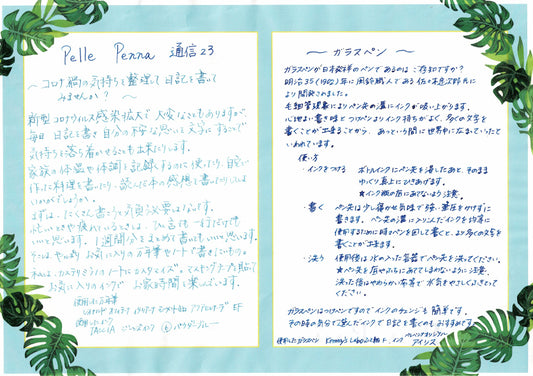 Pelle Penna 通信23
〜コロナ禍の気持ちを整理して日記を書いて
みませんか？〜
新型コロナウィルス感染拡大で大変なこともありますが、
毎日 日記を書き自分の不安な思いを文字にすることで
気持ちを落ち着かせることも出来たりします。
家族の体温や体調を記録するのに使ったり、自宅で
作った料理を書いたり、読んだ本の感想を書いたりしても
いいのでしょうか。
まずは、たくさん書こうと気負う必要はないです。
忙しい時や疲れているときは、ひと言でも一行だけでも
いいと思います。1週間分をまとめて書いてもいいと思います。
そこは、やっぱりお気に入りの万年筆やノートで書きたいもの。
私は、カスタマイズのノートにカスタマイズ。マスキングテープを貼って
お気に入りのインクで お家時間を楽しんでいます。
使用した万年筆
EF
使用したインク
〜 ガラスペン 〜
ガラスペンが日本発祥のペンであるのはご存知ですか？
明治35(1902)年に風鈴職人である佐々木定次郎氏に
より開発されました。
毛細管現象によりペン先の溝にインクが吸い上がります。
心地よい書き味と1つけでよりインク持ちがよく、多くの文字を
書くことが出来ることから、あっという間に世界中に広まっていったと
いわれています。
使い方
・インクをつける ボトルインクにペン先を浸したあと、そのまま
ゆっくり真上にひきあげます。
★インク瓶の底にあてないよう注意。
・書く ペン先は少し寝かせ気味で鋭い筆圧をかけずに
書きます。ペン先の溝に入り込んだインクを均等に
使用するために時々ペンを回して書くと、より多くの文字を
書くことが出来ます。
・洗う 使用後は水の入った容器でペン先を洗ってください。
★ペン先を底やふちにあててしまわないように注意
洗った後はやわらかい布等で水気をやさしくふきとって
ください。
ガラスペンはつけペンですのでインクのチェンジも簡単です。
その時の気分で選んだインクで日記を書くのもおすすめです。
使用したガラスペン
インク
アイリス